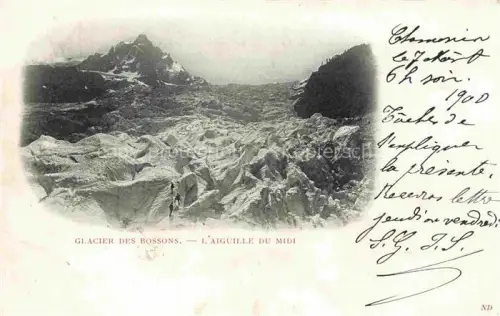 Chamonix
le 7 Août
7h soir.
1900
Tâchez de
m'expliquer
la présente.
Recevrez lettre
jeudi ou vendredi
GLACIER DES BOSSONS. — L'AIGUILLE DU MIDI
ND